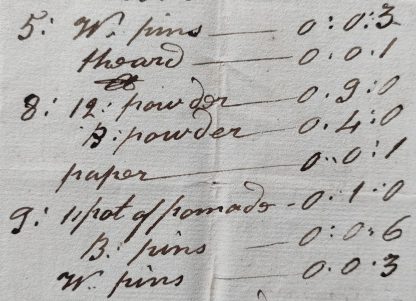 5: W. pins — 0:0:3
theard — 0.0.1
8: 12: powder — 0.9:0
B: powder — 0.4:0
paper — 0..0:1
9: 1:pot of pomade - 0.1:0
B. pins — 0:0.6
W. pins — 0.0.3